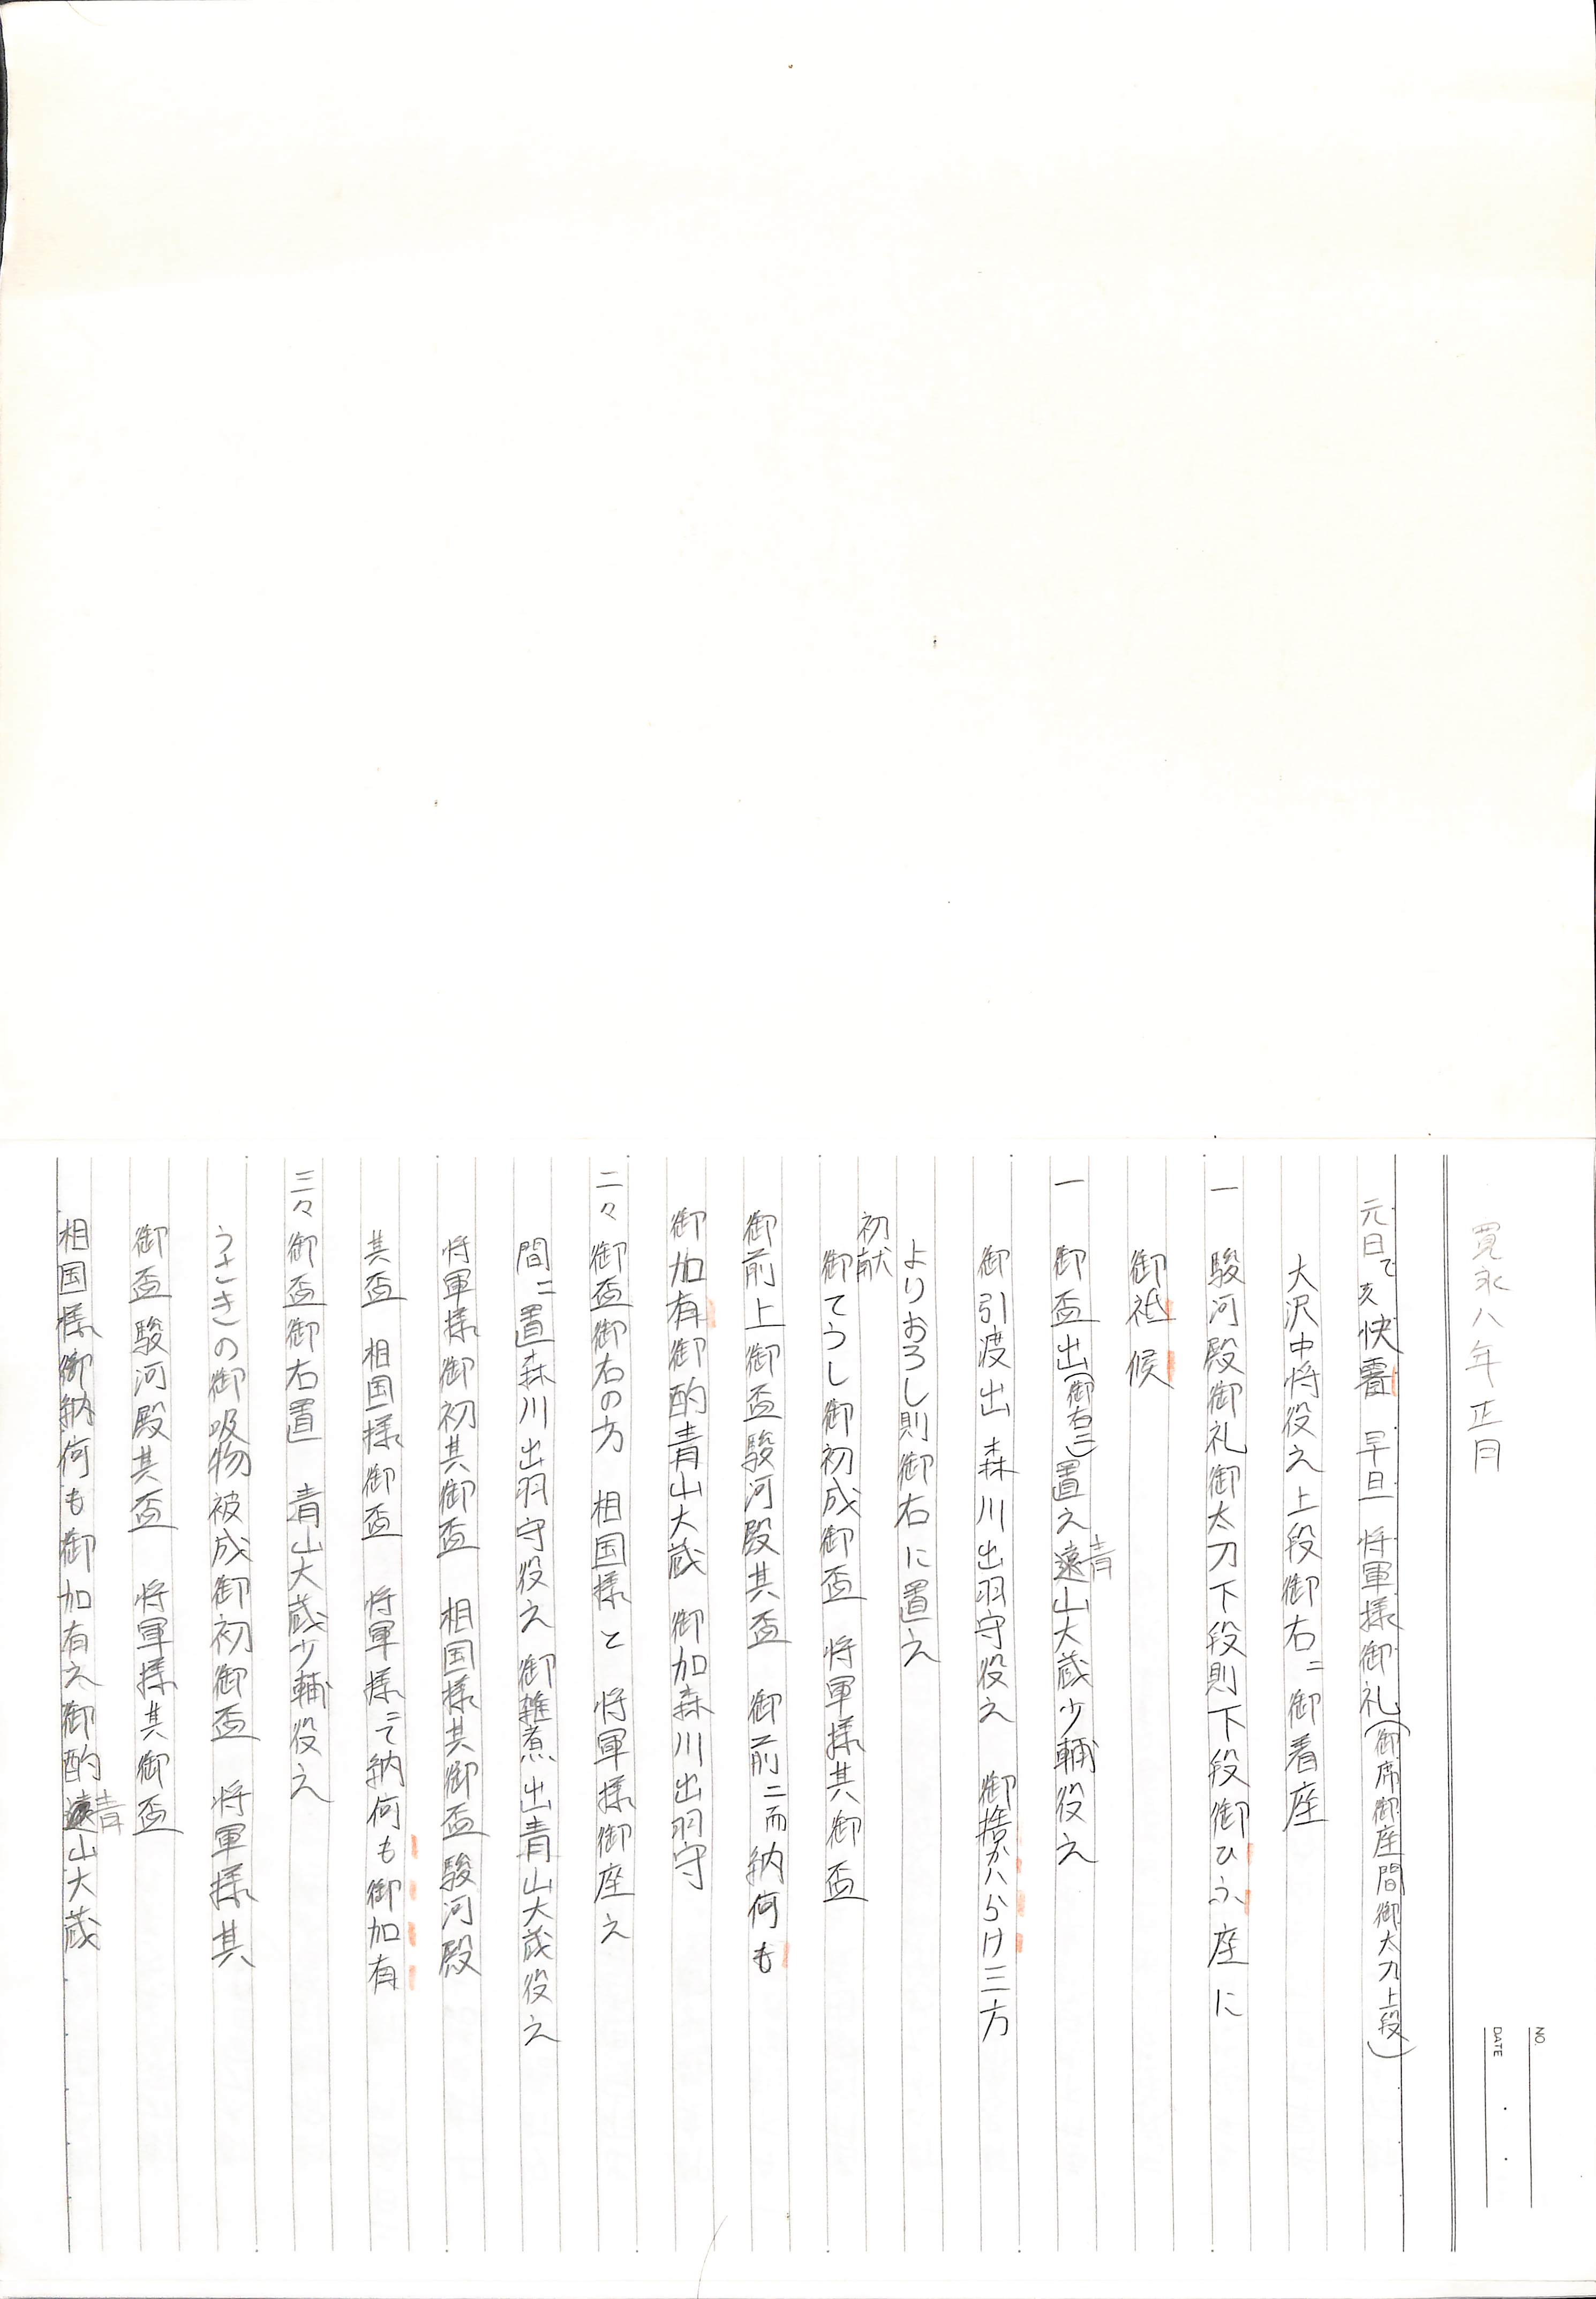 寛永八年正月
NO.
DATE
元日 快霽 早旦 将軍様御礼(御席御座間御太刀上段)
大沢中将役之上段御右ニ御着座
一 駿河殿御礼御太刀下段則下段御ひふ座に
御祗候
一 御盃出(御右ニ)置之青山大蔵少輔役之
御引渡出 森川出羽守役之 御捨かハらけ三方
よりおろし則御右に置之
初献
御てうし御初成御盃 将軍様其御盃
御前上御盃駿河殿其盃 御前ニ而納何も
御加有御酌青山大蔵 御加森川出羽守
二々御盃御右の方 相国様と 将軍様御座之
間ニ置森川出羽守役之 御雑煮出青山大蔵役之
将軍様御初其御盃 相国様其御盃駿河殿
其盃 相国様御盃 将軍様ニて納何も御加有
三々御盃御右置 青山大蔵少輔役之
うさきの御吸物被成御初御盃 将軍様其
御盃駿河殿其盃 将軍様其御盃
相国様御納何も御加有之御酌青山大蔵